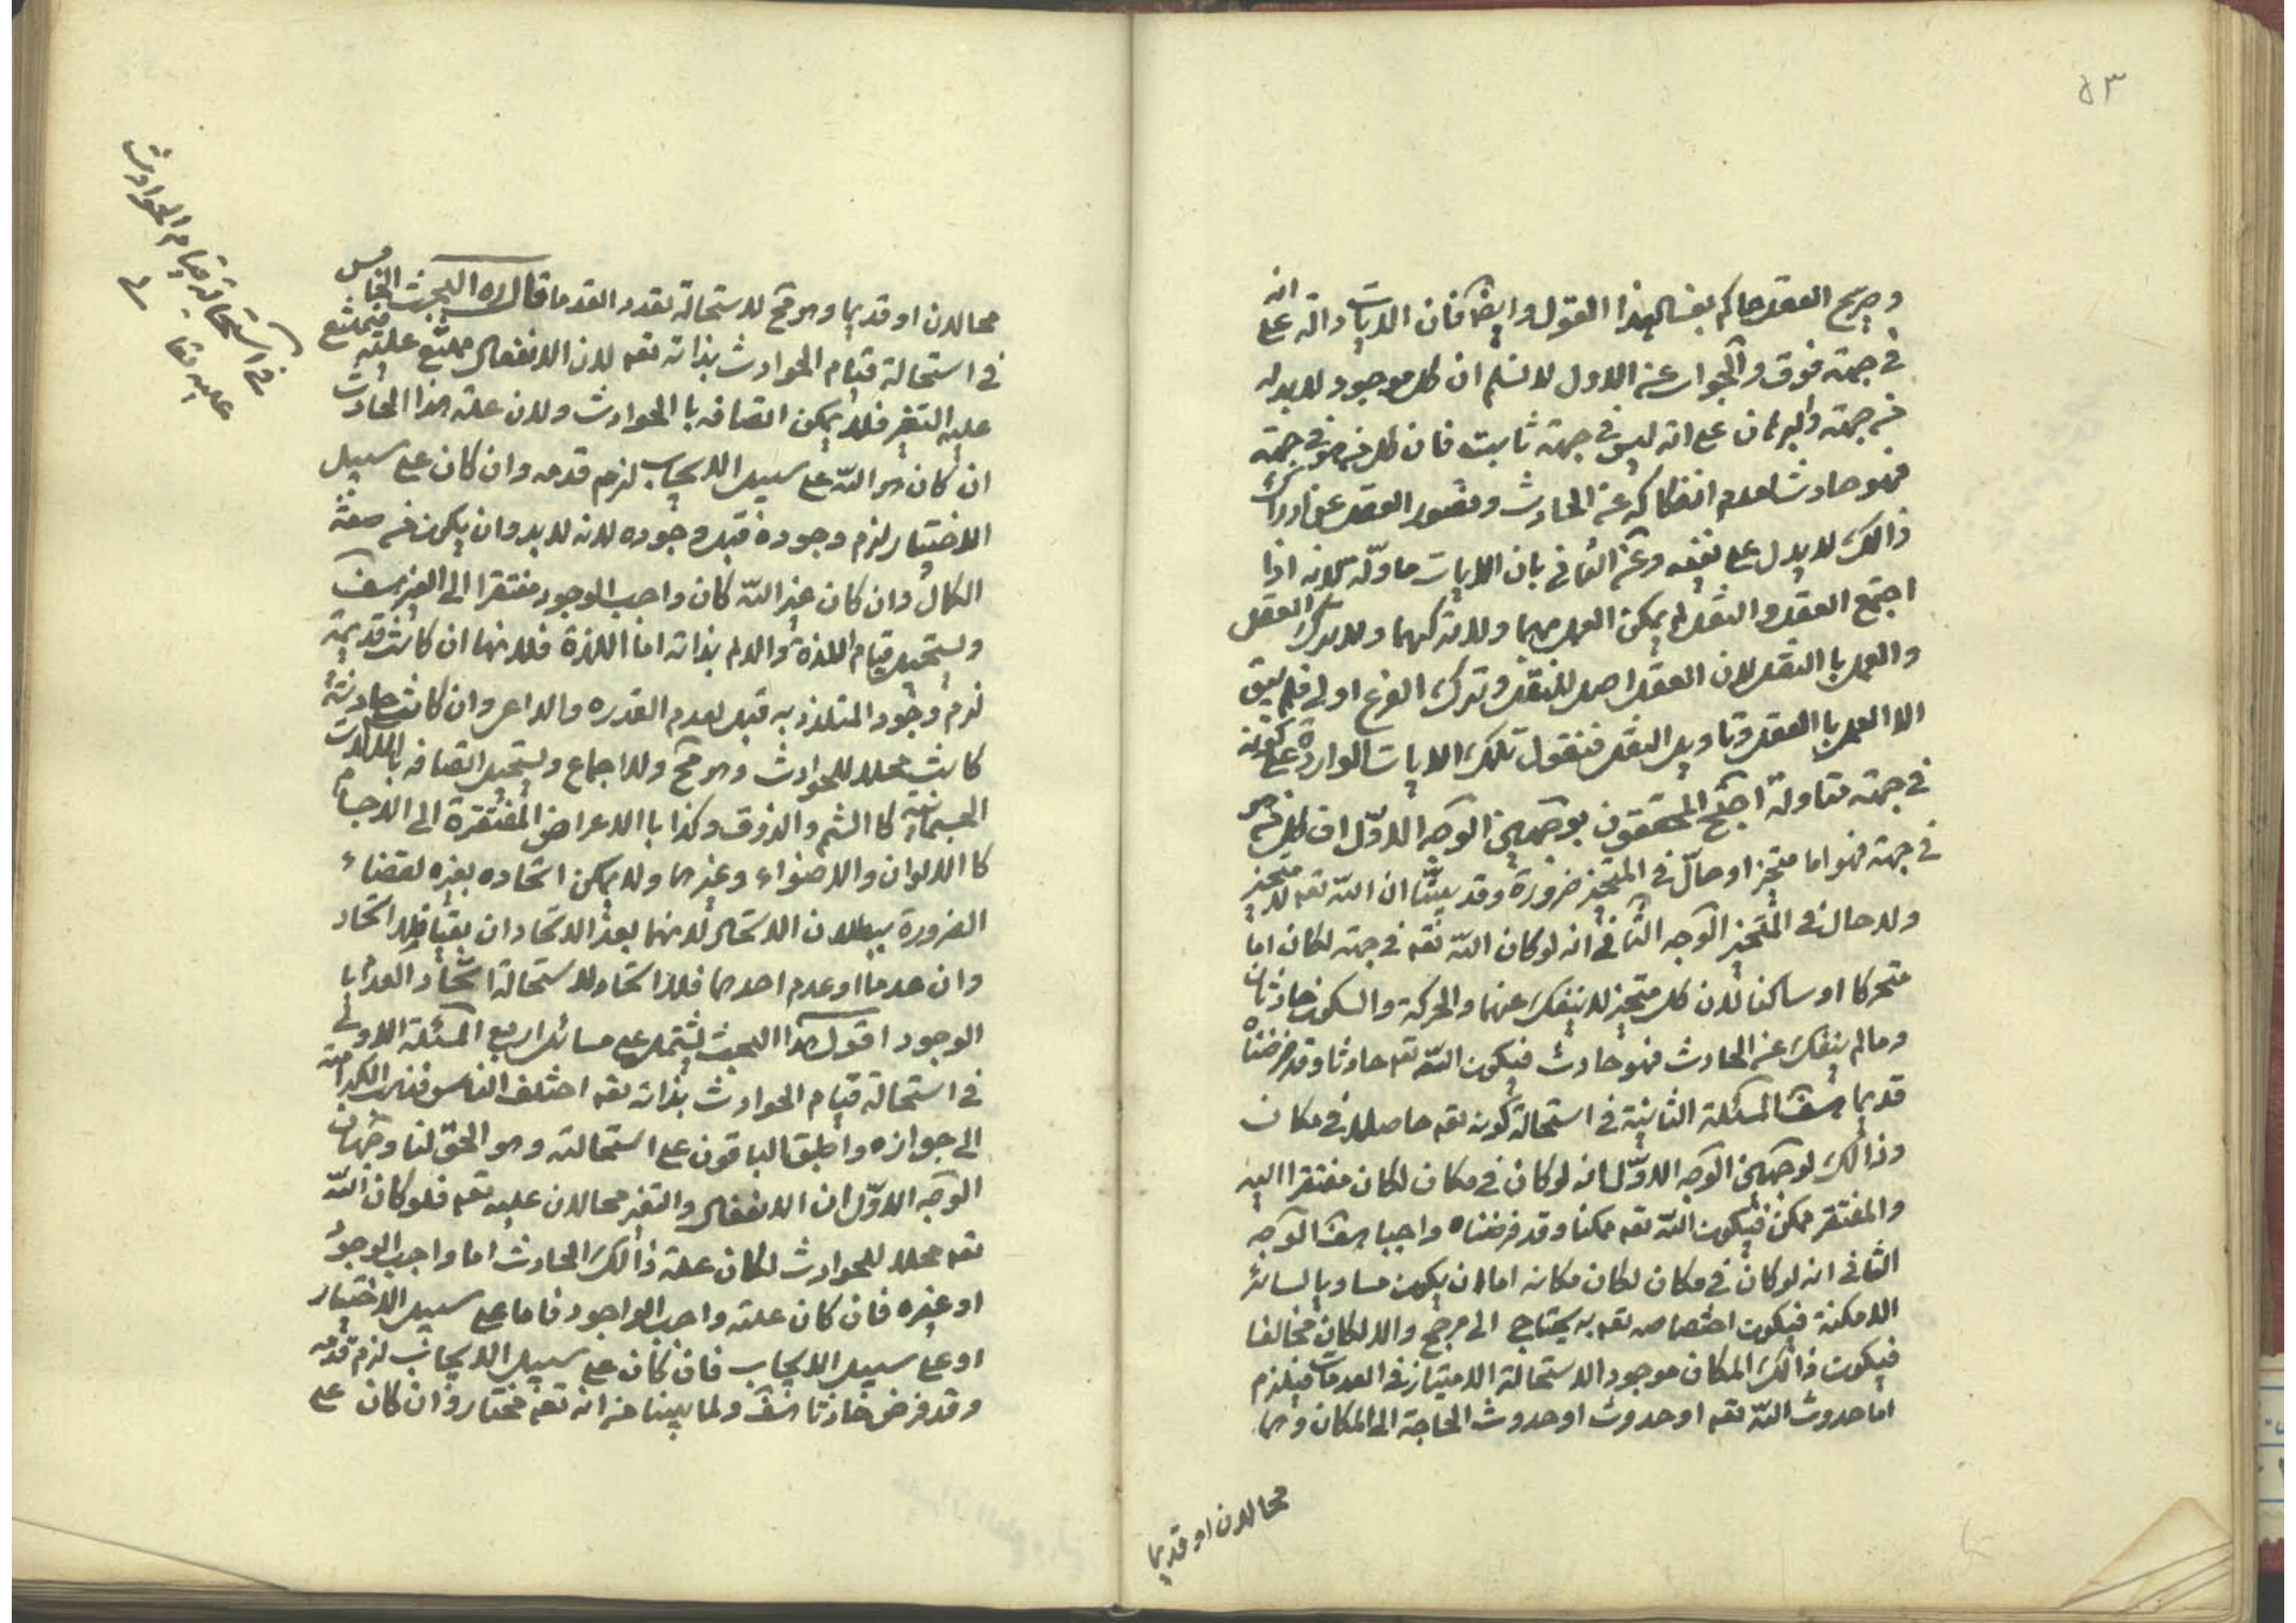 ٥٣
وصريح العقل حاكم بفساد هذا القول وايضا فان الايات دالة على انه
في جهة فوق والجواب عن الاول لا نسلم ان كل موجود لا بد له
من جهة والبرهان على انه ليس في جهة ثابت فان كل من هو في جهة
فهو حادث لعدم انفكاكه عن الحادث وقصور العقل عن ادراك
ذالك لا يدل على نفيه وعن الثاني بان الايات ماولة لانه اذا
اجتمع العقل والنقل لم يمكن العمل بهما ولا تركهما ولا ترك العقل
والعمل با النقل لان العقل اصل للنقل وترك الفرع اولى فلم يبق
الا العمل با العقل وتاويل النقل فنقول تلك الايات الواردة على كونه
في جهة تقاولة احتج المحققون بوجهين الوجه الاول ان كل من هو
في جهة فهو اما متحيز او حال في المتحيز ضرورة وقد بينا ان الله تعه لا متحيز
ولا حال في المتحيز الوجه الثاني انه لو كان الله تعه في جهة لكان اما
متحركا او ساكنا لان كل متحيز لا ينفك عنهما والحركة والسكون حادثان
وما لم ينفك عن الحادث فهو حادث فيكون الله تعه حادثا وقد فرضناه
قديما هف المسئلة الثانية في استحالة كونه تعه حاصلا في مكان
وذالك لوجهين الوجه الاول انه لو كان في مكان لكان مفتقرا اليه
والمفتقر ممكن فيكون الله تعه ممكنا وقد فرضناه واجبا هف الوجه
الثاني انه لو كان في مكان لكان مكانه اما ان يكون مساويا لسائر
الامكنة فيكون اختصاصه تعه به يحتاج الى مرجح والا لكان مخالفا
فيكون ذالك المكان موجود الاستحالة الامتياز في العدمات فيلزم
اما حدوث الله تعه او حدوث او حدوث الحاجة الى المكان وهما
محالان او قديما
محالان او قديما وهو مح لاستحالة تعدد القدما قال ره البحث الخامس
في استحالة قيام الحوادث بذاته تعه لان الانفعال ممتنع عليه فيمتنع
عليه التغير فلا يمكن اتصافه با الحوادث ولان علة هذا الحادث
ان كان هو الله على سبيل الايجاب لزم قدمه وان كان على سبيل
الاختيار لزم وجوده قبل وجوده لانه لا بد وان يكون من صفة
الكمال وان كان غير الله كان واجب الوجود مفتقرا الى الغير هف
ويستحيل قيام اللذة والالم بذاته اما اللذة فلانها ان كانت قديمة
لزم وجود المتلذذ به قبل لعدم القدره والداعى وان كانت حادثة
كانت محلا للحوادث وهو مح وللاجماع ويستحيل اتصافه بالملالات
الجسمانية كا الشم والذوق وكذا با الاعراض المفتقرة الى الاجسام
كا الالوان والاضواء وغيرهما ولا يمكن اتحاده بغيره لقضاء
الضرورة ببطلان الاتحاد لانهما بعد الاتحاد ان بقيا فلا اتحاد
وان عدما او عدم احدهما فلا اتحاد لاستحالة اتحاد العدم با
الوجود اقول هذا البحث يشتمل على مسائل اربع المسئلة الاولى
في استحالة قيام الحوادث بذاته تعه اختلف الناس فذهب الكرامية
الى جوازه واطبق الباقون على استحالته وهو الحق لنا وجهان
الوجه الاول ان الانفعال والتغير محالان عليه تعه فلو كان الله
تعه محلا للحوادث لكان علة ذالك الحادث اما واجب الوجود
او غيره فان كان علته واجب الواجود فاما على سبيل الاختيار
او على سبيل الايجاب فان كان على سبيل الايجاب لزم قدمه
وقد فرض حادثا هف ولما بينا من انه تعه مختار وان كان على
في استحالة قيام الحوادث
عليه تعا